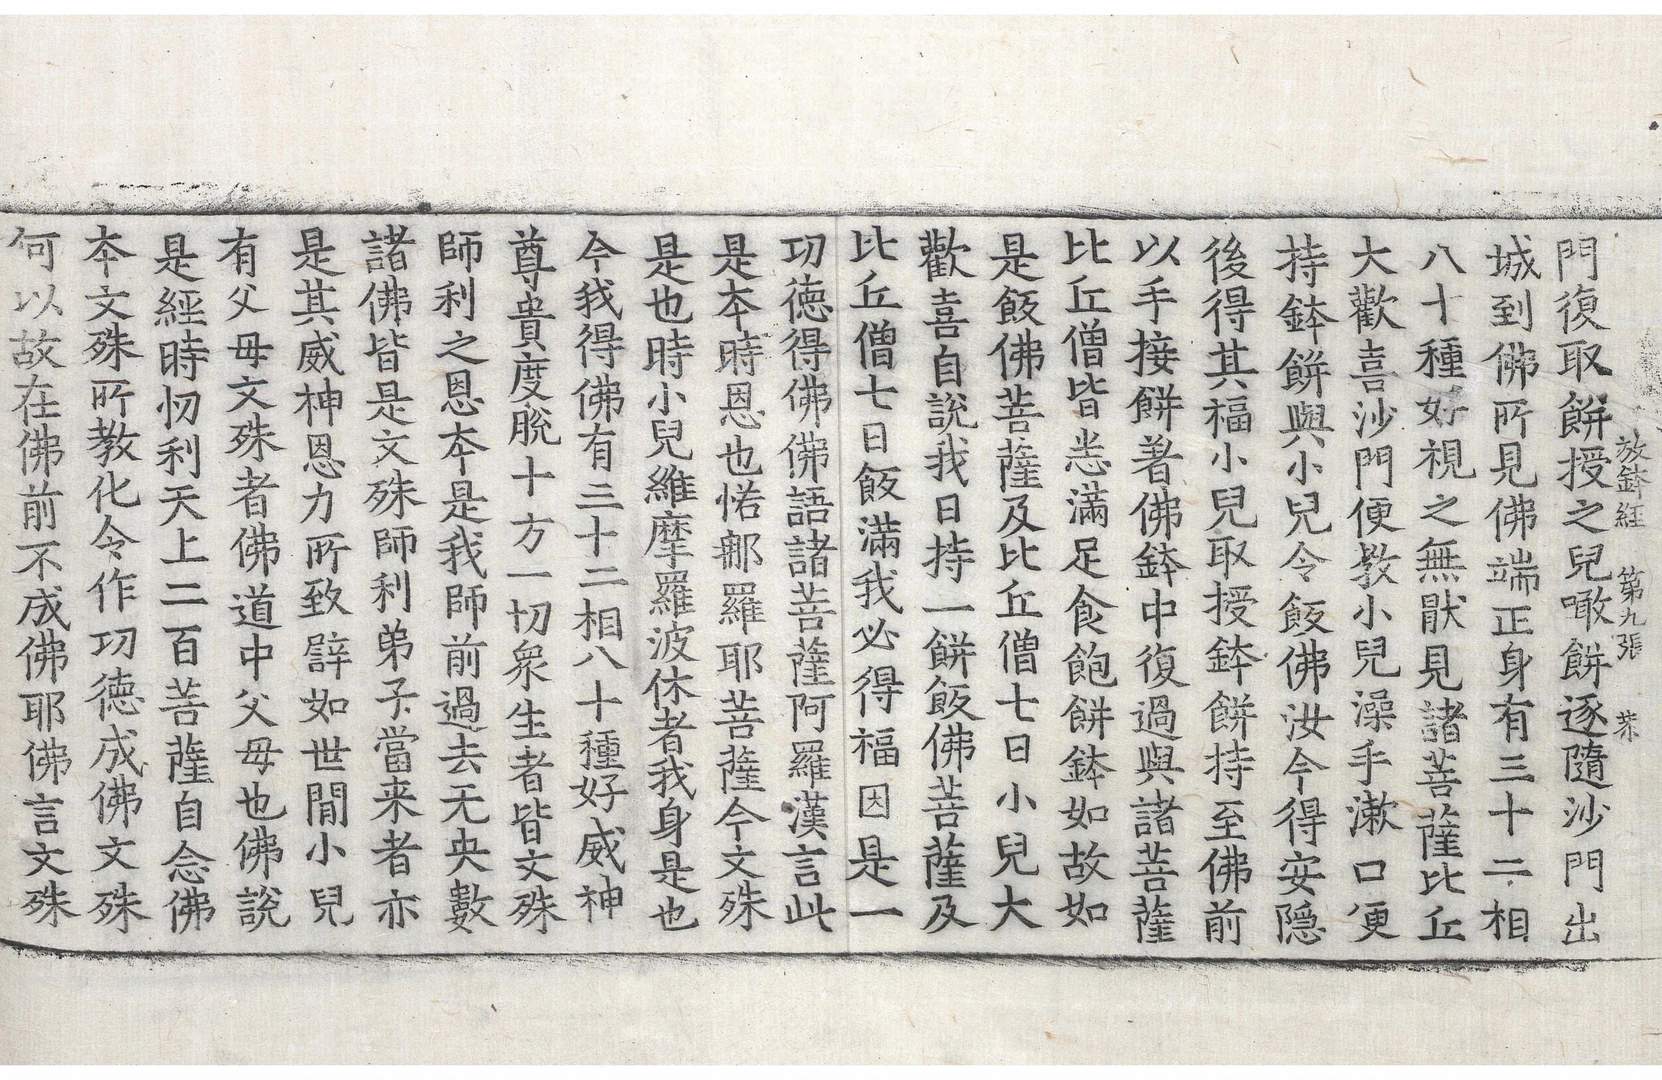 放鉢經 第九張 㳟
門復取餠授之兒噉餠逐隨沙門出
城到佛所見佛端正身有三十二相
八十種好視之無猒見諸菩薩比丘
大歡喜沙門便教小兒澡手漱口更
持鉢餠與小兒令飯佛汝今得安隱
後得其福小兒取授鉢餠持至佛前
以手接餠著佛鉢中復過與諸菩薩
比丘僧皆悉滿足食飽餠鉢如故如
是飯佛菩薩及比丘僧七日小兒大
歡喜自說我日持一餠飯佛菩薩及
比丘僧七日飯滿我必得福因是一
功德得佛佛語諸菩薩阿羅漢言此
是本時恩也惒㝹羅耶菩薩今文殊
是也時小兒維摩羅波休者我身是也
今我得佛有三十二相八十種好威神
尊貴度脫十方一切衆生者皆文殊
師利之恩本是我師前過去无央數
諸佛皆是文殊師利弟子當來者亦
是其威神恩力所致譬如世間小兒
有父母文殊者佛道中父母也佛說
是經時忉利天上二百菩薩自念佛
本文殊所教化令作功德成佛文殊
何以故在佛前不成佛耶佛言文殊